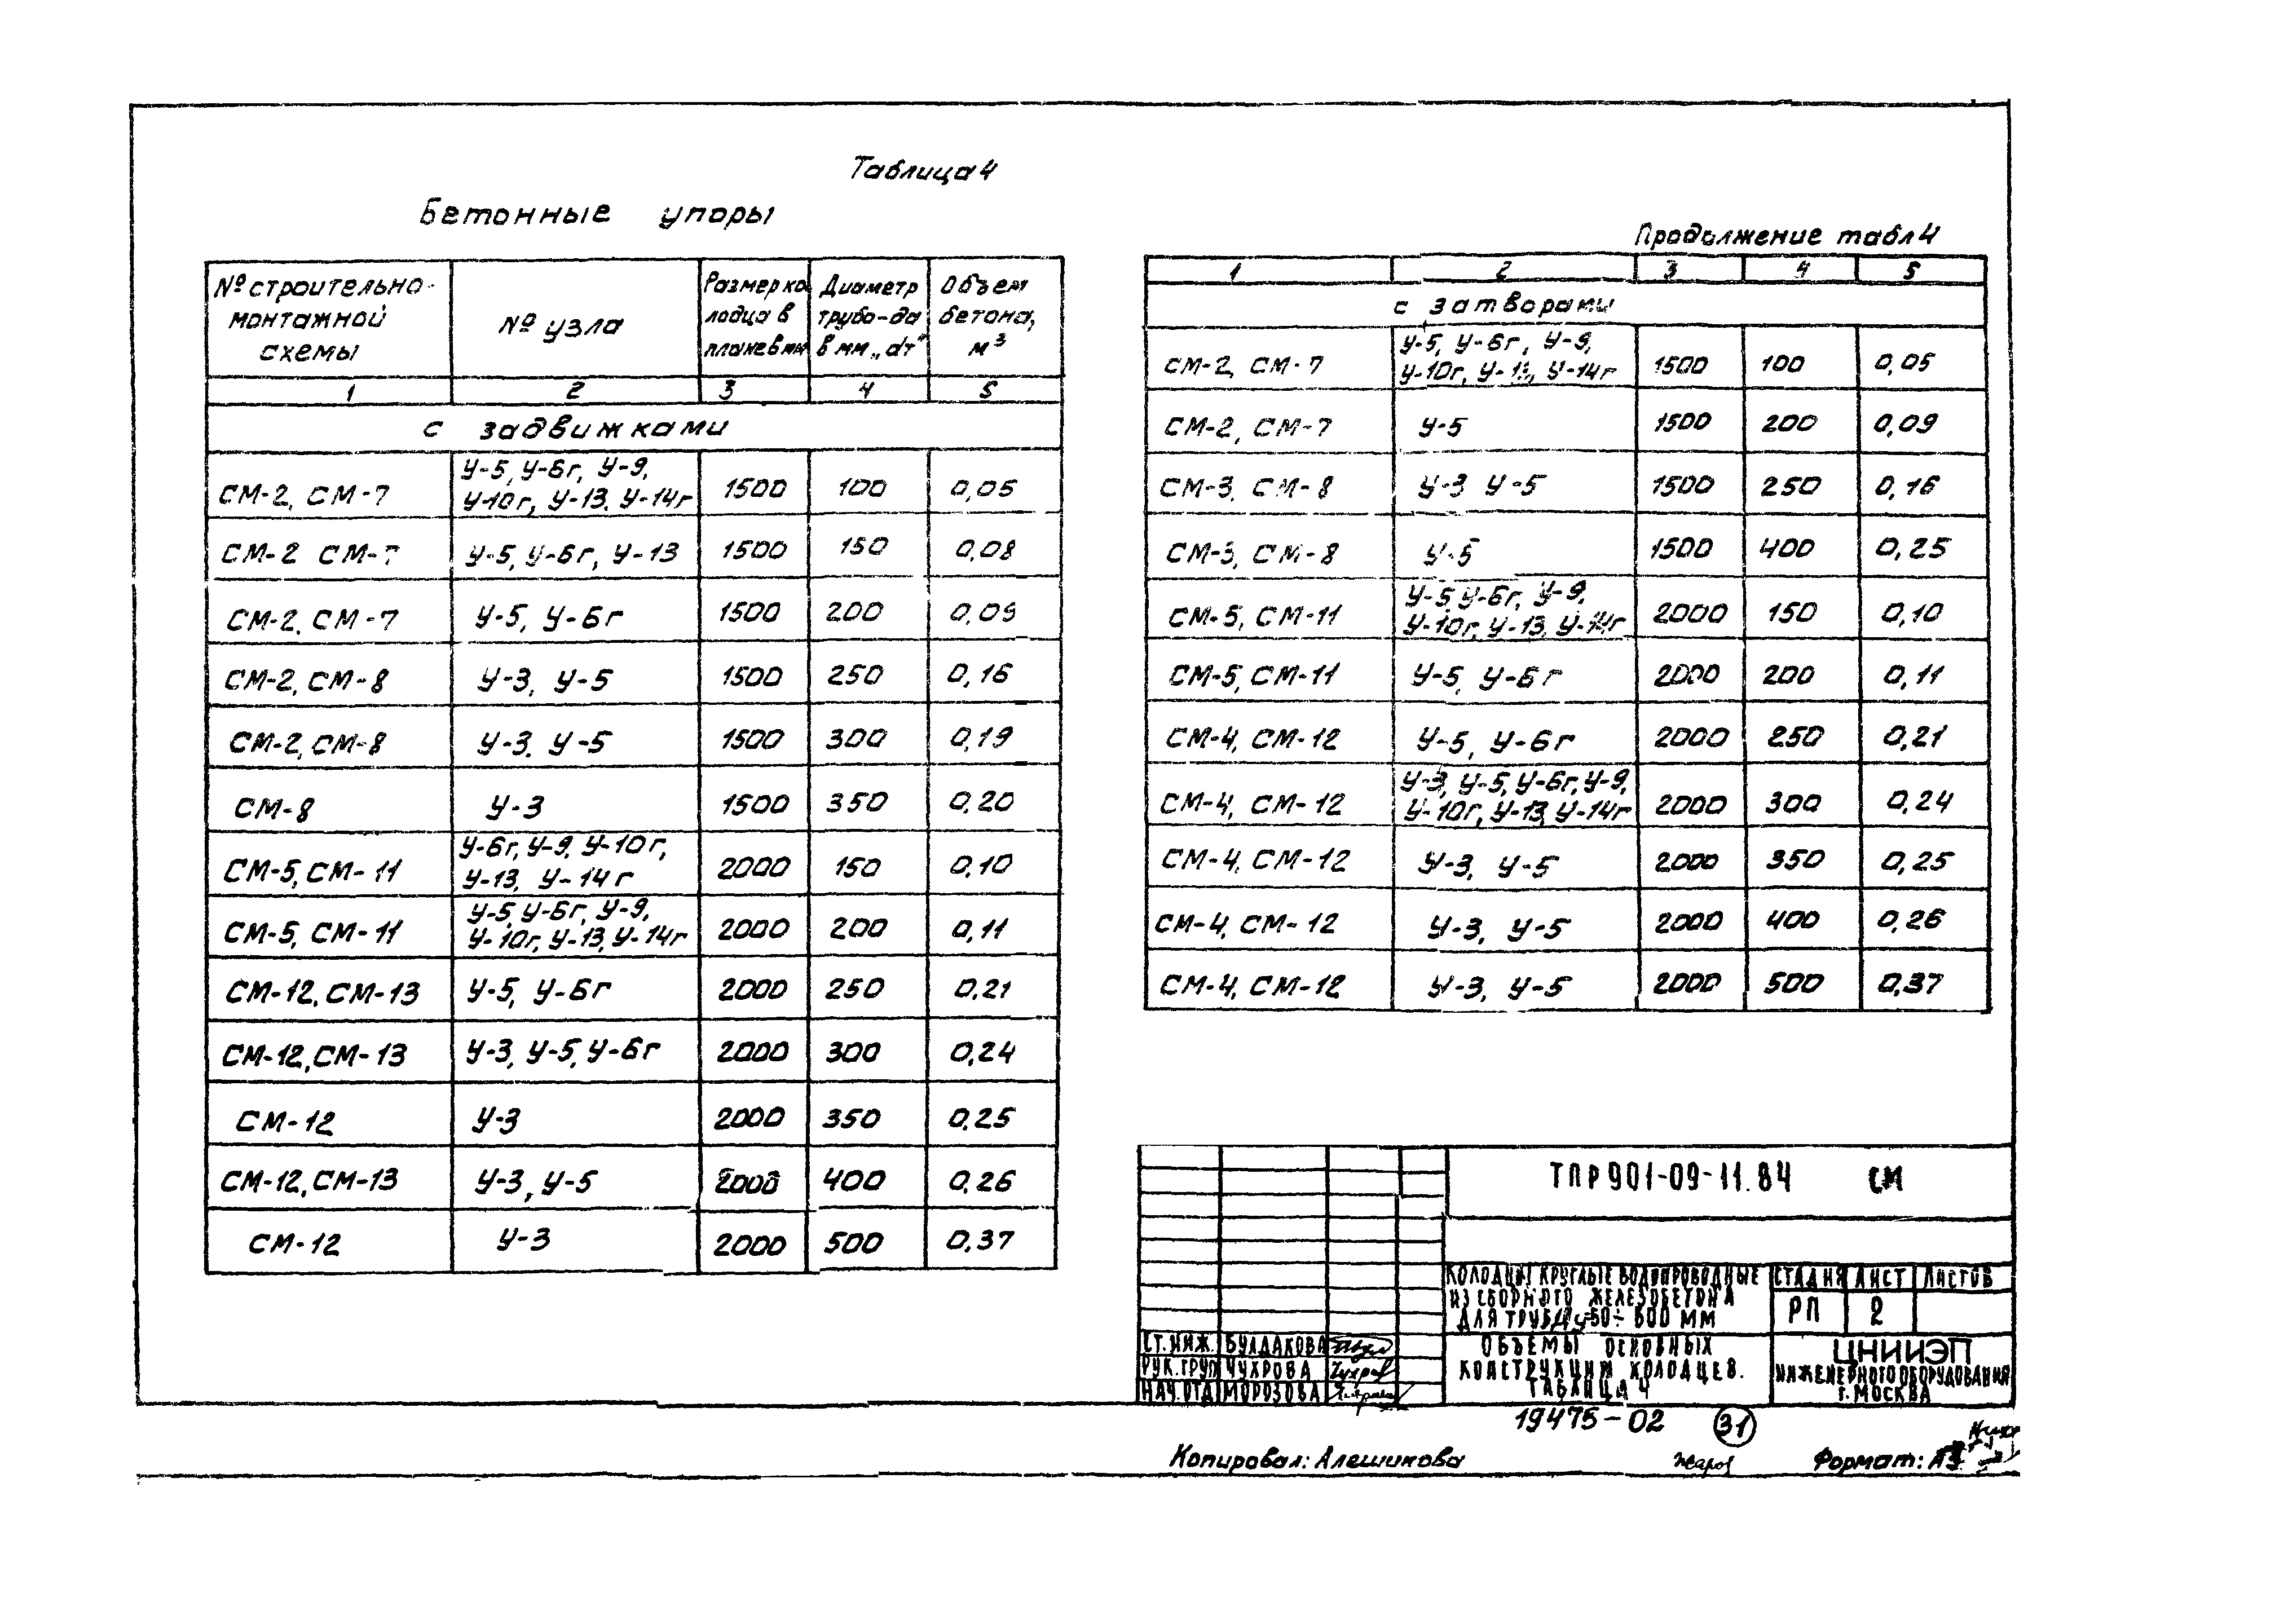 Таблица 4
Бетонные упоры
№ строительно-монтажной схемы | № узла | Размер колодца в плане в мм | Диаметр трубо-да в мм „dт" | Объем бетона, м³
1 2 3 4 5
с задвижками
СМ-2, СМ-7 | У-5, У-6г, У-9, У-10г, У-13, У-14г | 1500 | 100 | 0,05
СМ-2 СМ-7 | У-5, У-6г, У-13 | 1500 | 150 | 0,08
СМ-2, СМ-7 | У-5, У-6г | 1500 | 200 | 0,09
СМ-2, СМ-8 | У-3, У-5 | 1500 | 250 | 0,16
СМ-2, СМ-8 | У-3, У-5 | 1500 | 300 | 0,19
СМ-8 | У-3 | 1500 | 350 | 0,20
СМ-5, СМ-11 | У-6г, У-9, У-10г, У-13, У-14г | 2000 | 150 | 0,10
СМ-5, СМ-11 | У-5, У-6г, У-9, У-10г, У-13, У-14г | 2000 | 200 | 0,11
СМ-12, СМ-13 | У-5, У-6г | 2000 | 250 | 0,21
СМ-12, СМ-13 | У-3, У-5, У-6г | 2000 | 300 | 0,24
СМ-12 | У-3 | 2000 | 350 | 0,25
СМ-12, СМ-13 | У-3, У-5 | 2000 | 400 | 0,26
СМ-12 | У-3 | 2000 | 500 | 0,37
Продолжение табл 4
1 2 3 4 5
с затворами
СМ-2, СМ-7 | У-5, У-6г, У-9, У-10г, У-13, У-14г | 1500 | 100 | 0,05
СМ-2, СМ-7 | У-5 | 1500 | 200 | 0,09
СМ-3, СМ-8 | У-3 У-5 | 1500 | 250 | 0,16
СМ-3, СМ-8 | У-5 | 1500 | 400 | 0,25
СМ-5, СМ-11 | У-5 У-6г, У-9, У-10г, У-13, У-14г | 2000 | 150 | 0,10
СМ-5, СМ-11 | У-5, У-6г | 2000 | 200 | 0,11
СМ-4, СМ-12 | У-5, У-6г | 2000 | 250 | 0,21
СМ-4, СМ-12 | У-3, У-5, У-6г, У-9, У-10г, У-13, У-14г | 2000 | 300 | 0,24
СМ-4, СМ-12 | У-3, У-5 | 2000 | 350 | 0,25
СМ-4, СМ-12 | У-3, У-5 | 2000 | 400 | 0,26
СМ-4, СМ-12 | У-3, У-5 | 2000 | 500 | 0,37
ТПР 901-09-11.84 СМ
КОЛОДЦЫ КРУГЛЫЕ ВОДОПРОВОДНЫЕ
ИЗ СБОРНОГО ЖЕЛЕЗОБЕТОНА
ДЛЯ ТРУБ Ду-50÷600 ММ
СТАДИЯ ЛИСТ ЛИСТОВ
РП 2
СТ. ИНЖ. БУЛДАКОВА
РУК. ГРУП ЧУХРОВА
НАЧ. ОТД МОРОЗОВА
ОБЪЕМЫ ОСНОВНЫХ
КОНСТРУКЦИЙ КОЛОДЦЕВ.
ТАБЛИЦА 4
ЦНИИЭП
ИНЖЕНЕРНОГО ОБОРУДОВАНИЯ
г. МОСКВА
19475-02 31
Копировал: Алешикова
Формат: А3